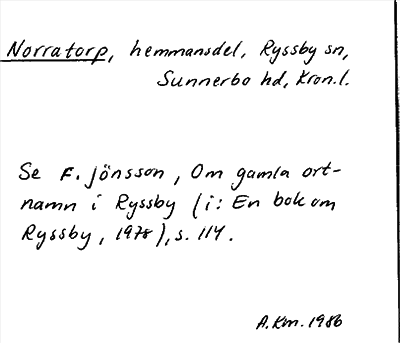 Norratorp, hemmansdel, Ryssby sn,
Sunnerbo hd, Kron.l.
Se F. Jönsson, Om gamla ort-
namn i Ryssby (i: En bok om
Ryssby, 1978), s. 114.
A.Km. 1986